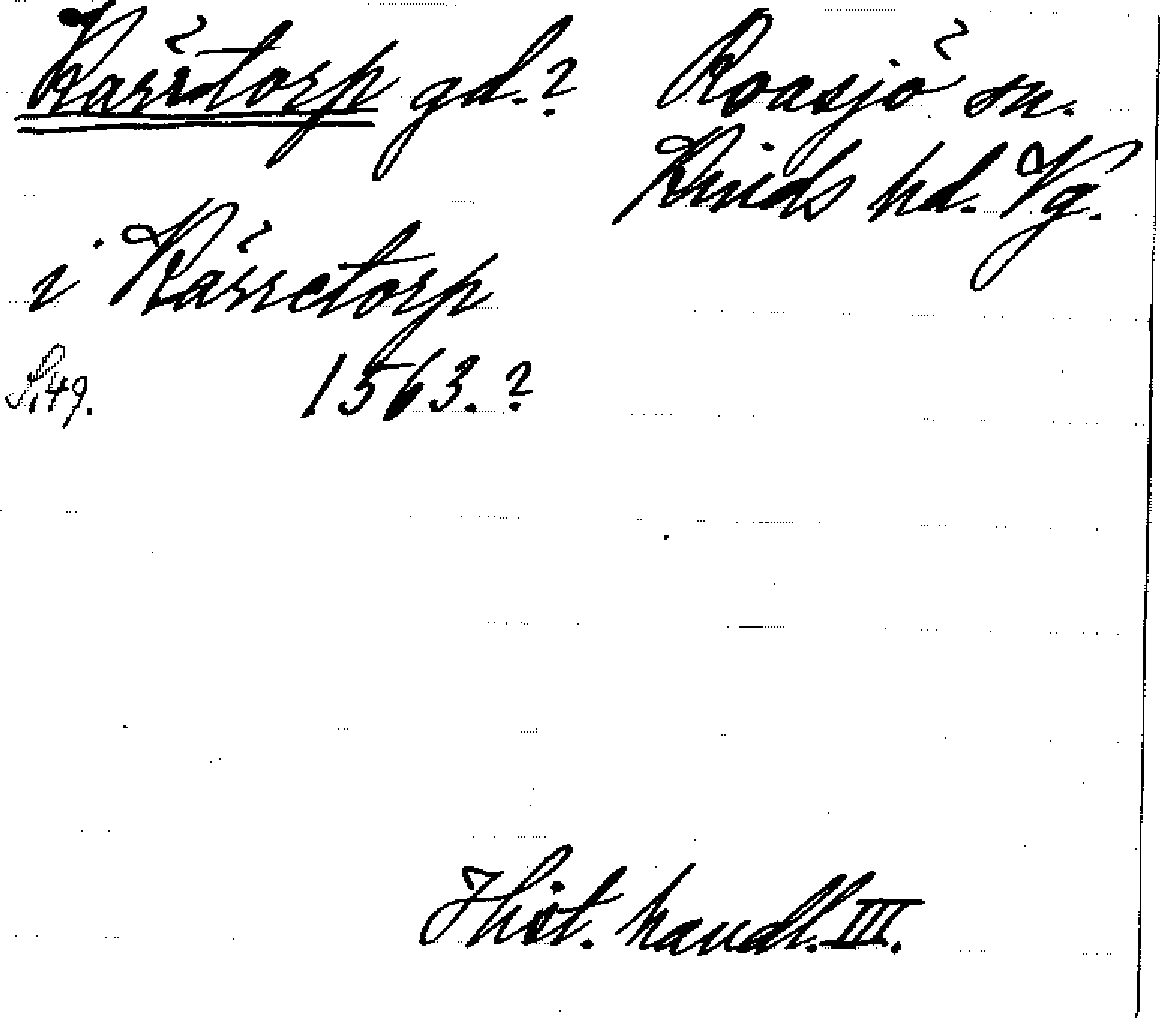 Kärrtorp gd.? Roasjö sn.
Kinds hd. Vg.
i Kärretorp
S. 49. 1563.?
Hist. handl. III.